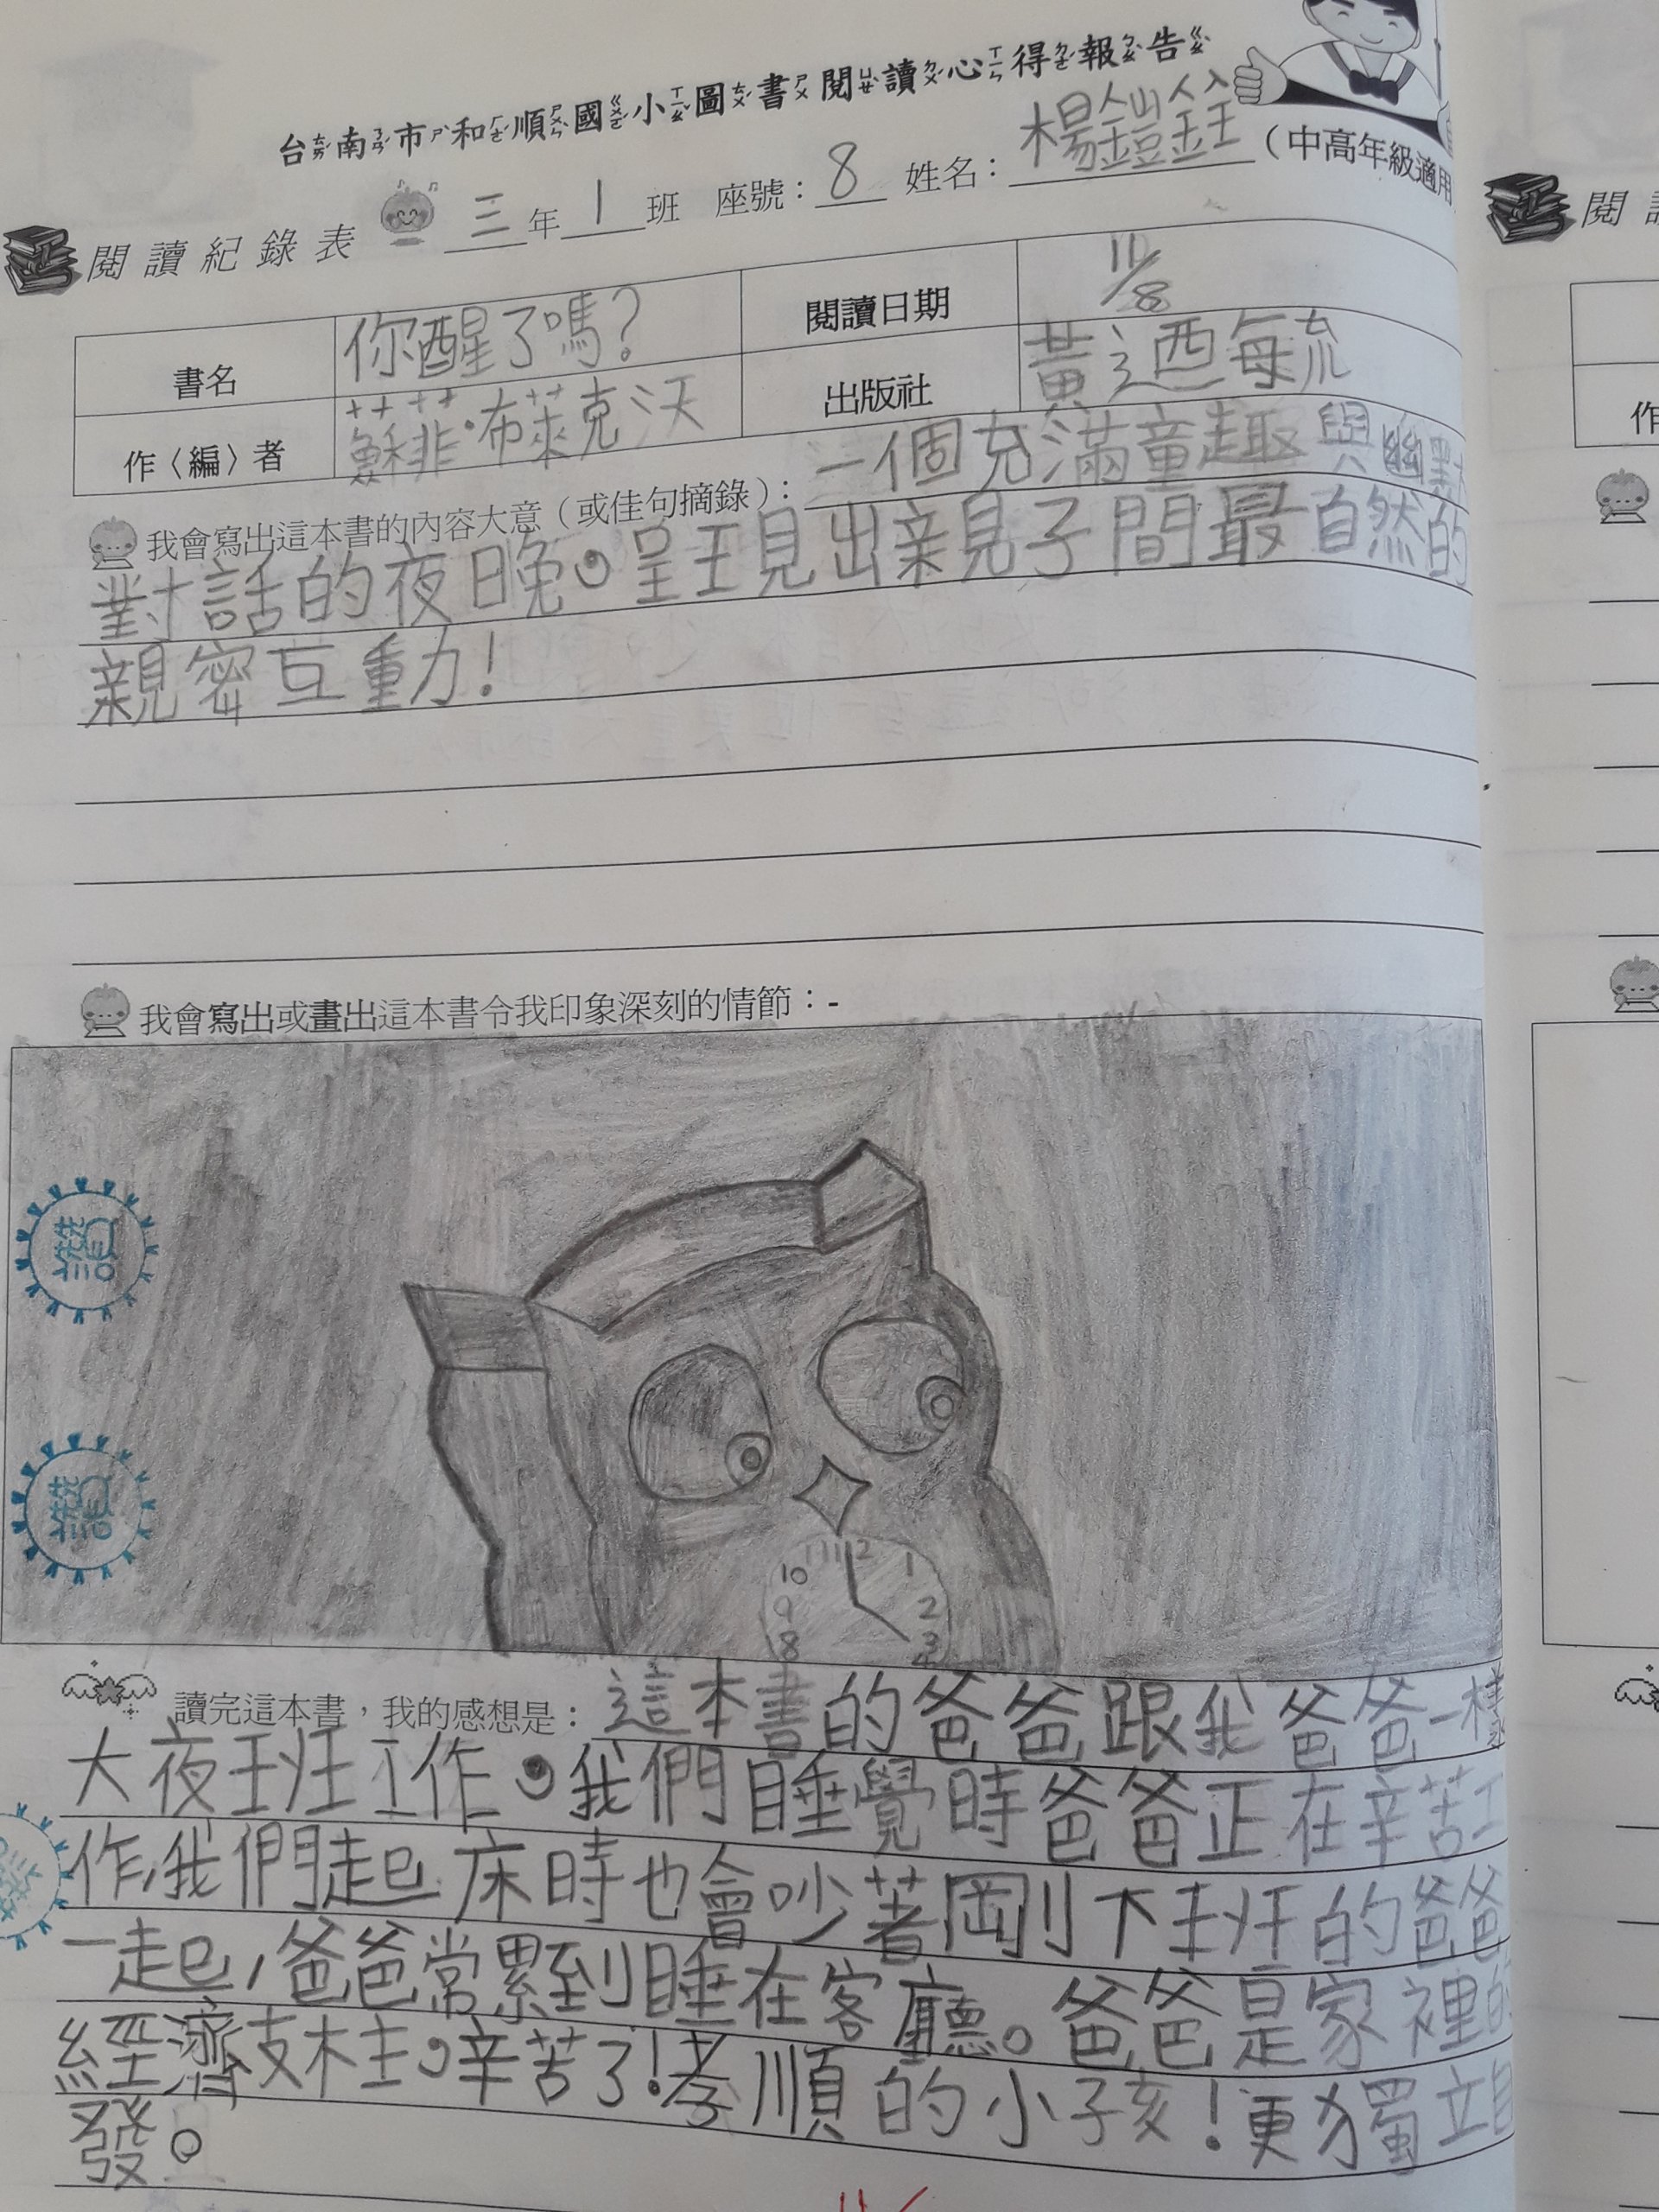 台南市和順國小圖書閱讀心得報告
閱讀紀錄表 三年1班 座號：8 姓名：楊鎧銓（中高年級適用
書名 你醒了嗎？ 閱讀日期 11/8
作〈編〉者 蘇菲·布萊克沃 出版社
我會寫出這本書的內容大意（或佳句摘錄）：一個充滿童趣與幽默
對話的夜晚。呈現出親子間最自然的
親密互動！
我會寫出或畫出這本書令我印象深刻的情節：-
讚
讚
10 11 12 1
9 2
8 3
讀完這本書，我的感想是：這本書的爸爸跟我爸爸一樣
大夜班工作。我們睡覺時爸爸正在辛苦工
作,我們起床時也會吵著剛下班的爸爸
一起,爸爸常累到睡在客廳。爸爸是家裡的
經濟支柱。辛苦了！孝順的小孩！更獨立自
發。
閱
作